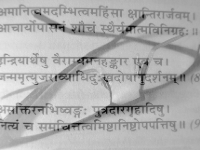 अमानित्वमदम्भित्वमहिंसा क्षान्तिरार्जवम्।
आचार्योपासनं शौचं स्थैर्यमात्मविनिग्रहः
न्द्रियार्थेषु वैराग्यमनहङ्कार एव च।
न्ममृत्युजराव्याधिदुःखदोषानुदर्शनम् ॥
असक्तिरनभिष्वङ्गः पुत्रदारगृहादिषु।
नित्यं च समचित्तत्वमिष्टानिष्टोपपत्तिषु ॥